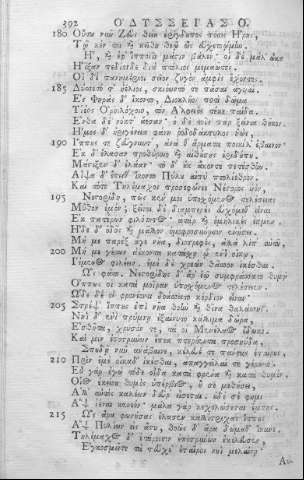 392 ΟΔΥΣΣΕΙΑΣ Ο.
180 Οὕτω νῦν Ζεὺς θείη ἐρίγδουπος πόσις Ἥρης,
Τῷ κέν τοι καὶ κεῖθι θεῷ ὣς εὐχετοῴμην.
Ἦ, καὶ ἐφ' ἵπποιϊν μάστιν βάλεν· οἱ δὲ μάλ' ὦκα
Ἤϊξαν πεδίονδε διὰ πτόλιος μεμαῶτες.
Οἱ δὲ πανημέριοι σεῖον ζυγὸν ἀμφὶς ἔχοντες.
185 Δύσετό τ' ἠέλιος, σκιόωντό τε πᾶσαι ἀγυιαί·
Ἐς Φηρὰς δ' ἵκοντο, Διοκλῆος ποτὶ δῶμα
Υἱέος Ὀρσιλόχοιο, τὸν Ἀλφειὸς τέκε παῖδα.
Ἔνθα δὲ νύκτ' ἄεσαν· ὁ δὲ τοῖς πὰρ ξείνια θῆκεν.
Ἦμος δ' ἠριγένεια φάνη ῥοδοδάκτυλος ἠώς,
190 Ἵππους τε ζεύγνυντ', ἀνά θ' ἅρματα ποικίλ' ἔβαινον·
Ἐκ δ' ἔλασαν προθύροιο καὶ αἰθούσης ἐριδούπου·
Μάστιξεν δ' ἐλάαν· τὼ δ' οὐκ ἄκοντε πετέσθην.
Αἶψα δ' ἔπειθ' ἵκοντο Πύλου αἰπὺ πτολίεθρον·
Καὶ τότε Τηλέμαχος προσεφώνεε Νέστορος υἱόν,
195 Νεστορίδη, πῶς κέν μοι ὑποσχόμενος τελέσειας
Μῦθον ἐμόν; ξεῖνοι δὲ διαμπερὲς εὐχόμεθ' εἶναι
Ἐκ πατέρων φιλότητος· ἀτὰρ καὶ ὁμήλικές εἰμεν·
Ἥδε δ' ὁδὸς καὶ μᾶλλον ὁμοφροσύνῃσιν ἐνήσει.
Μή με παρὲξ ἄγε νῆα, διοτρεφές, ἀλλὰ λίπ' αὐτοῦ,
200 Μή μ' ὁ γέρων ἀέκοντα κατάσχῃ ᾧ ἐνὶ οἴκῳ
Ἱέμενος φιλέειν· ἐμὲ δὲ χρεὼ θᾶσσον ἱκέσθαι.
Ὣς φάτο. Νεστορίδης δ' ἄρ' ἑῷ συμφράσσατο θυμῷ
Ὅππως οἱ κατὰ μοῖραν ὑποσχόμενος τελέσειεν.
Ὧδε δέ οἱ φρονέοντι δοάσσατο κέρδιον εἶναι·
205 Στρέψ' ἵππους ἐπὶ νῆα θοὴν καὶ θῖνα θαλάσσης·
Νηῒ δ' ἐνὶ πρύμνῃ ἐξαίνυτο κάλλιμα δῶρα,
Ἐσθῆτα, χρυσόν τε, τά οἱ Μενέλαος ἔδωκε·
Καί μιν ἐποτρύνων ἔπεα πτερόεντα προσηύδα,
Σπουδῇ νῦν ἀνάβαινε, κέλευέ τε πάντας ἑταίρους,
210 Πρὶν ἐμὲ οἴκαδ' ἱκέσθαι, ἀπαγγεῖλαί τε γέροντι.
Εὖ γὰρ ἐγὼ τόδε οἶδα κατὰ φρένα καὶ κατὰ θυμόν·
Οἷος ἐκείνου θυμὸς ὑπέρβιος, οὔ σε μεθήσει,
Ἀλλ' αὐτὸς καλέων δεῦρ' εἴσεται· οὐδέ ἕ φημι
Ἂψ ἰέναι κενεόν· μάλα γὰρ κεχολώσεται ἔμπης.
215 Ὣς ἄρα φωνήσας ἔλασεν καλλίτριχας ἵππους
Ἂψ Πυλίων εἰς ἄστυ, θοῶς δ' ἄρα δώμαθ' ἵκανε.
Τηλέμαχος δ' ἑτάροισιν ἐποτρύνων ἐκέλευσεν,
Ἐγκοσμεῖτε τὰ τεύχε' ἑταῖροι νηῒ μελαίνῃ